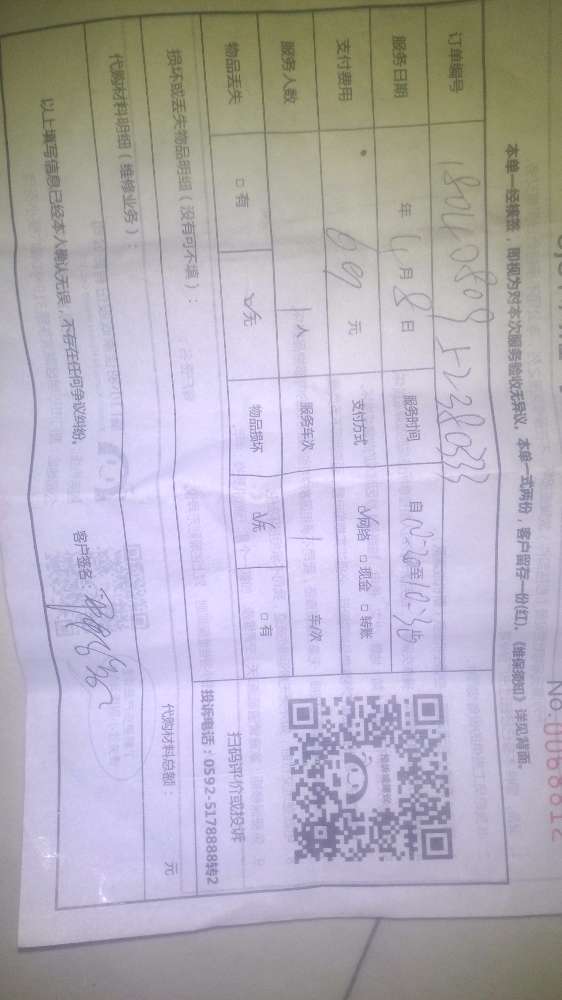 No:0068812
本单一经接签,即视为对本次服务验收无异议。本单一式两份,客户留存一份(红)。《维保须知》详见背面。
订单编号 1804080952380333
服务日期 年 4月8日 服务时间 自 至10:30止
支付费用 69 元 支付方式 ☑网络 □现金 □转账
服务人数 1 人 服务车次 1 车/次
物品丢失 □有 ☑无 物品损坏 ☑无 □有
损坏或丢失物品明细(没有可不填):
扫码评价或投诉
投诉电话:0592-5178888转2
代购材料明细(维修业务):
代购材料总额: 元
以上填写信息已经本人确认无误,不存在任何争议纠纷。
客户签名: